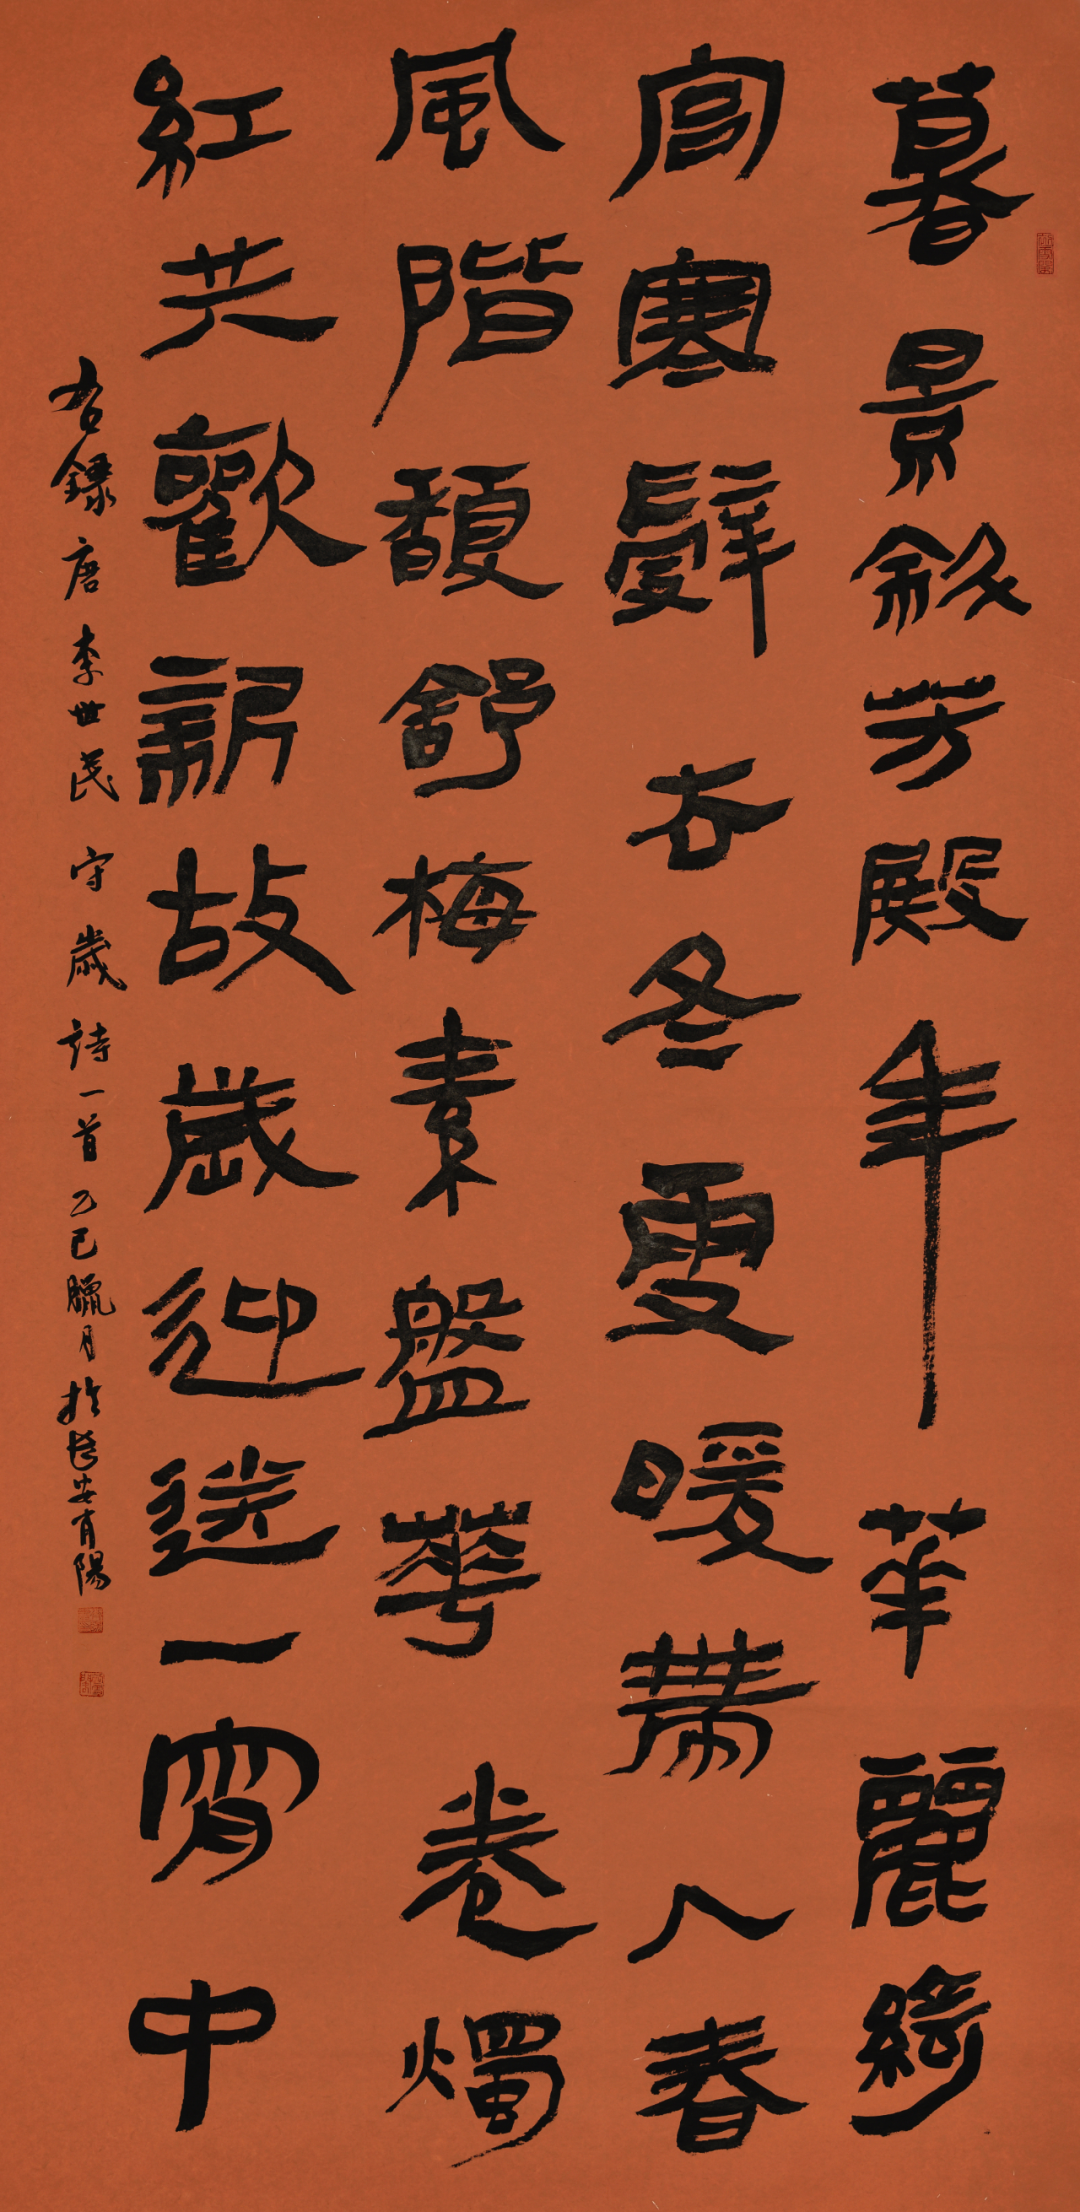 暮景斜芳殿年華麗綺
宮寒辭去冬雪暖帶入春
風階馥舒梅素盤華卷燭
紅共歡新故歲迎送一宵中
右錄唐李世民守歲詩一首乙巳臘月於長安陽